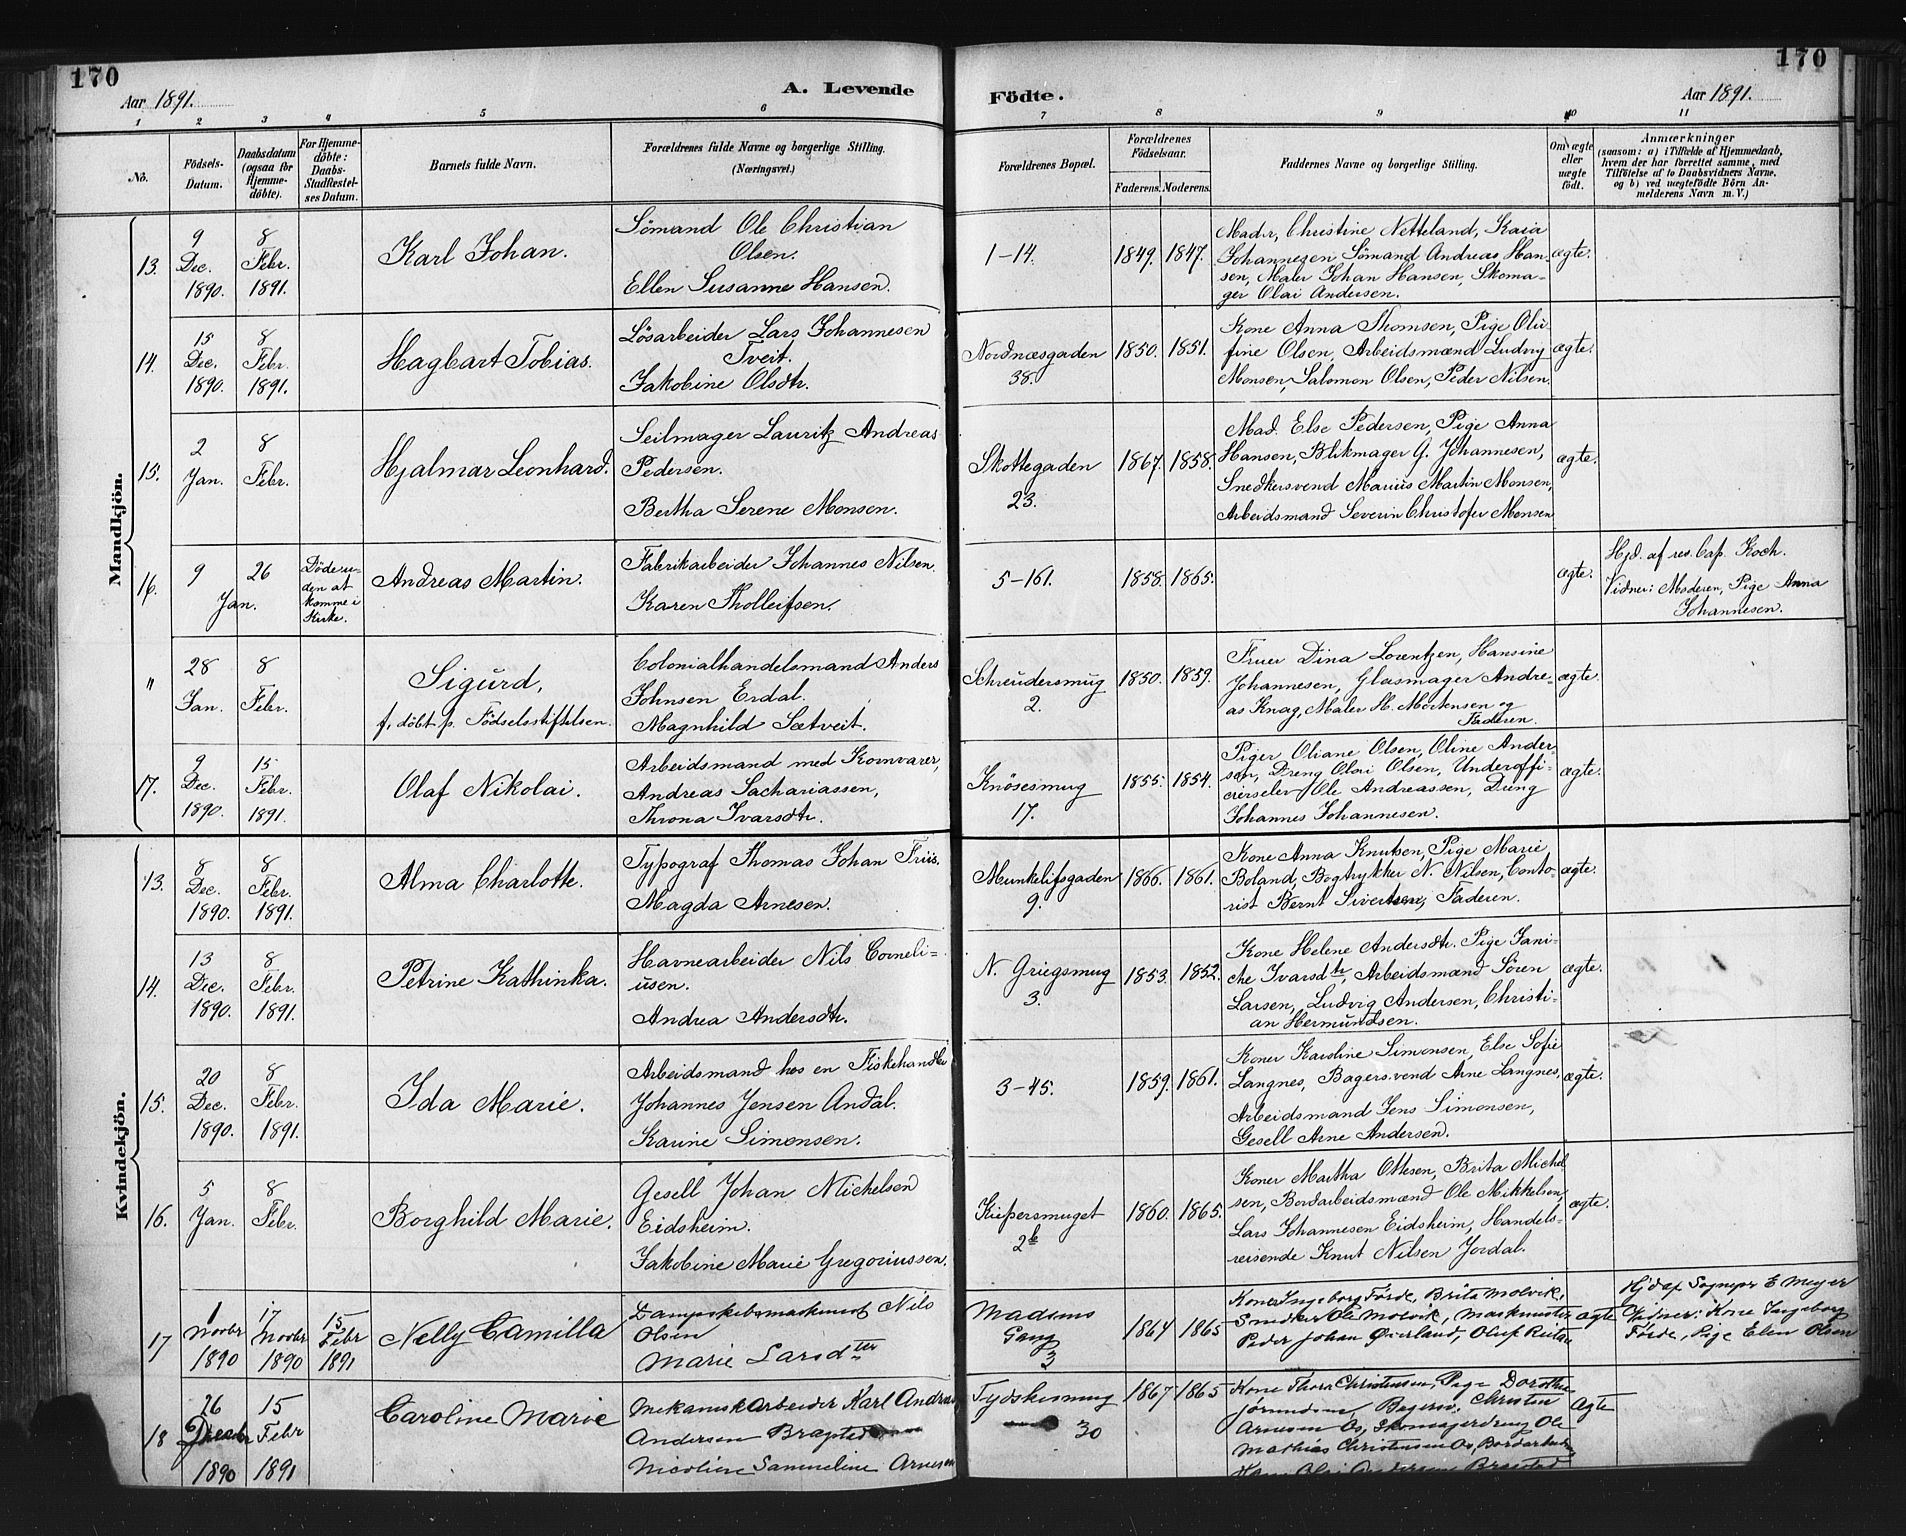 170
170
Aar 1891.
A. Levende
Födte.
Aar 1891.
1 2 3 4 5 6 7 8 9 10 11
No.
Födsels-
Datum.
Daabsdatum
(ogsaa for
Hjemme-
döbte).
For Hjemme-
döbte:
Daabs-
Stadfæstel-
ses Datum.
Barnets fulde Navn.
Forældrenes fulde Navne og borgerlige Stilling.
(Næringsvei.)
Forældrenes Bopæl.
Forældrenes
Födselsaar.
Faderens. Moderens.
Faddernes Navne og borgerlige Stilling.
Om ægte
eller
uægte
födt.
Anmærkninger
(saasom: a) i Tilfælde af Hjemmedaab,
hvem der har forrettet samme, med
Tilföielse af to Daabsvidners Navne,
og b) ved uægtefödte Börn An-
melderens Navn m. V.)
Mandkjön.
13.
9
Dec.
1890.
8
Febr.
1891.
Karl Johan.
Sömand Ole Christian
Olsen.
Ellen Susanne Hansen.
1-14.
1849. 1847.
Madr, Christine Netteland, Kaia
Johannesen Sömand Andreas Han-
sen, Maler Johan Hansen, Skoma-
ger Olai Andersen.
ægte.
14.
15
Dec.
1890.
8
Febr.
1891.
Hagbart Tobias.
Lösarbeider Lars Johannesen
Tveit.
Jakobine Olsdtr.
Nordnæsgaden
38.
1850. 1851.
Kone Anna Thomsen, Pige Oli-
fine Olsen, Arbeidsmænd Ludvig
Monsen, Salomon Olsen, Peder Nilsen.
ægte.
15.
2
Jan.
8
Febr.
Hjalmar Leonhard.
Seilmager Lauritz Andreas
Pedersen.
Bertha Serene Monsen.
Skottegaden
23.
1867. 1858.
Mad. Else Pedersen, Pige Anna
Hansen, Blikmager G. Johannesen,
Snedkersvend Marius Martin Monsen,
Arbeidsmand Severin Christofer Monsen
ægte.
16.
9 26
Jan.
Döde u-
den at
komme i
Kirke.
Andreas Martin.
Fabrikarbeider Johannes Nilsen.
Karen Tholleifsen.
5-161.
1858. 1865.
ægte.
Hjd. af res. Cap. Koch.
Vidner: Moderen, Pige Anna
Johannesen.
"
28
Jan.
8
Febr.
Sigurd,
f. döbt p. Födselsstiftelsen.
Colonialhandelsmand Anders
Johnsen Erdal.
Magnhild Sætveit.
Schreudersmug
2.
1850. 1859.
Fruer Dina Lorentzen, Hansine
Johannesen, Glasmager Andre-
as Knag, Maler H. Mortensen og
Faderen.
ægte.
17.
9
Dec.
1890.
15
Febr.
1891.
Olaf Nikolai.
Arbeidsmand med Kornvarer,
Andreas Sachariassen,
Throna Ivarsdtr.
Knösesmug
17.
1855. 1854.
Piger Oliane Olsen, Oline Ander-
sen, Dreng Olai Olsen, Underoffi-
cierselev Ole Andreassen, Dreng
Johannes Johannesen.
ægte.
Kvindekjön.
13.
8
Dec.
1890.
8
Febr.
1891.
Alma Charlotte.
Typograf Thomas Johan Friis.
Magda Arnesen.
Munkelifsgaden
9.
1866. 1861.
Kone Anna Knutsen, Pige Marie
Boland, Bogtrykker N. Nilsen, Conto-
rist Bernt Sivertsen, Faderen.
ægte.
14.
13
Dec.
1890.
8
Febr.
1891.
Petrine Kathinka.
Havnearbeider Nils Corneli-
usen.
Andrea Andersdtr.
N. Griegsmug
3.
1853. 1852.
Kone Helene Andersdtr. Pige Jani-
che Ivarsdtr, Arbeidsmænd Sören
Larsen, Ludvig Andersen, Christi-
an Hermundsen.
ægte.
15.
20
Dec.
1890.
8
Febr.
1891.
Ida Marie.
Arbeidsmand hos en Fiskehandler
Johannes Jensen Andal.
Karine Simonsen.
3-45.
1859. 1861.
Koner Karoline Simonsen, Else Sofie
Langnes, Bagersvend Arne Langnes,
Arbeidsmand Jens Simonsen,
Gesell Arne Andersen.
ægte.
16.
5
Jan.
8
Febr.
Borghild Marie.
Gesell Johan Michelsen
Eidsheim.
Jakobine Marie Gregoriussen.
Kippersmuget
2b
1860. 1865.
Koner Martha Ottesen, Brita Michel-
sen, Bordarbeidsmænd Ole Mikkelsen,
Lars Johannesen Eidsheim, Handels-
reisende Knut Nilsen Jordal.
ægte.
17
1
Novbr
1890
17
Novbr
1890
15
Febr
1891
Nelly Camilla
Dampskibsmaskinist Nils
Olsen
Marie Larsdtter
Madsens
Gang
3
1864 1865
Kone Ingeborg Förde, Brita Molvik,
Snedker Ole Molvik, Maskinister
Peder Johan Överland, Oluf Reitan
ægte
Hjd af Sognepr E Meyer
Vidner: Kone Ingeborg
Förde, Pige Elen Olsen
18
26
Decebr
1890
15
Febr
1891
Caroline Marie
Mekaniskarbeider Karl Andreas
Andersen Bragstad
Nicoline Sammeline Arnesen
Tydskesmug
30
1867 1865
Kone Thora Christensen, Pige Dorothea
Jörundsen, Bagersv. Christen
Arnesen Os, Skomagerdreng Ole
Mathias Christensen Os, Bordarbeider
Hans Olai Andersen Bragstad
Ægte